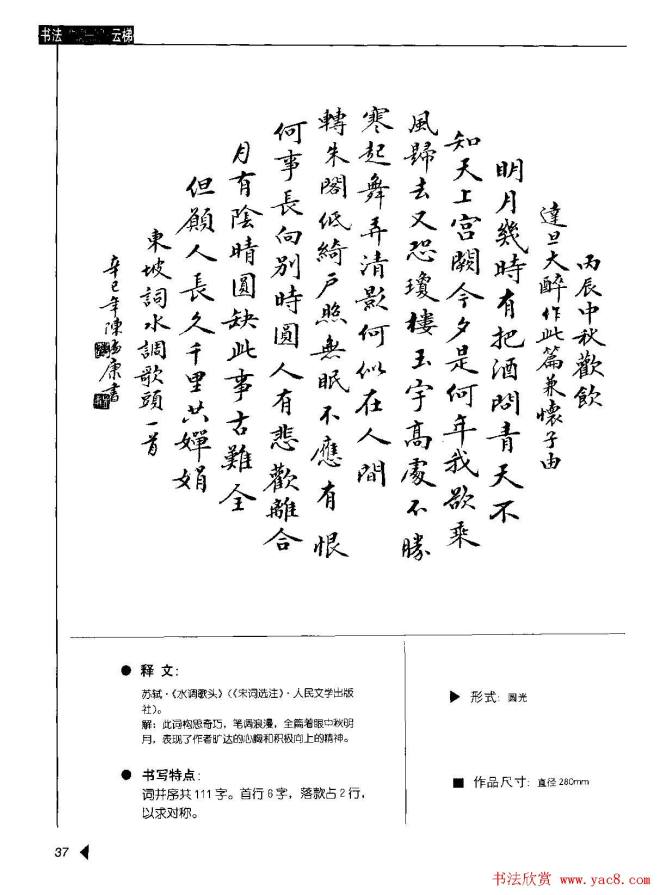 书法 云梯
丙辰中秋歡飲
達旦大醉作此篇兼懷子由
明月幾時有把酒問青天不
知天上宫闕今夕是何年我欲乘
風歸去又恐瓊樓玉宇高處不勝
寒起舞弄清影何似在人間
轉朱閣低綺户照無眠不應有恨
何事長向别時圓人有悲歡離合
月有陰晴圓缺此事古難全
但願人長久千里共嬋娟
東坡詞水調歌頭一首
辛巳年陳 康書
● 释 文:
苏轼·《水调歌头》(《宋词选注》·人民文学出版
社)。
解: 此词构思奇巧, 笔调浪漫, 全篇着眼中秋明
月, 表现了作者旷达的心胸和积极向上的精神。
● 书写特点:
词并序共111字。首行6字, 落款占2行,
以求对称。
▶ 形式: 圆光
■ 作品尺寸: 直径280mm
37 ◀
书法欣赏 www.yac8.com